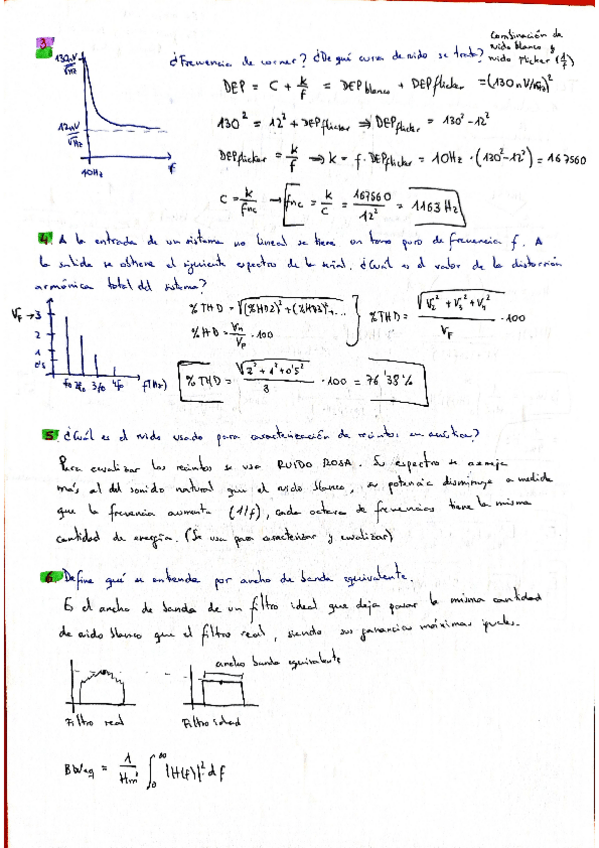 3
Combinación de
ruido blanco y
ruido flicker (1/f)
¿Frecuencia de corner? ¿De qué curva de ruido se trata?
130 nV/√Hz
12 nV/√Hz
10Hz
f
DEP = C + k/f = DEP blanco + DEP flicker = (130 nV/√Hz)²
130² = 12² + DEP flicker ⇒ DEP flicker = 130² - 12²
DEP flicker = k/f → k = f · DEP flicker = 10Hz · (130² - 12²) = 167560
C = k/fnc → fnc = k/C = 167560/12² = 1163 Hz
4. A la entrada de un sistema no lineal se tiene un tono puro de frecuencia f. A
la salida se obtiene el siguiente espectro de la señal. ¿Cuál es el valor de la distorsión
armónica total del sistema?
VF → 3
2
1
0's
f0 2f0 3f0 4f0 f(Hz)
%THD = √((%HD2)² + (%HD3)² + ...
%HD = Vn/VF · 100
%THD = √(V2² + V3² + V4²)/VF · 100
%THD = √(2² + 1² + 0's²)/3 · 100 = 76'38%
5. ¿Cuál es el ruido usado para caracterización de recintos en acústica?
Para ecualizar los recintos se usa RUIDO ROSA. Su espectro se asemeja
más al del sonido natural que el ruido blanco, su potencia disminuye a medida
que la frecuencia aumenta (1/f), cada octava de frecuencias tiene la misma
cantidad de energía. (Se usa para caracterizar y ecualizar)
6. Define qué se entiende por ancho de banda equivalente.
Es el ancho de banda de un filtro ideal que deja pasar la misma cantidad
de ruido blanco que el filtro real, siendo sus ganancias máximas iguales.
ancho banda equivalente
Filtro real
Filtro ideal
BWeq = 1/Hm² ∫₀^∞ |H(f)|² df